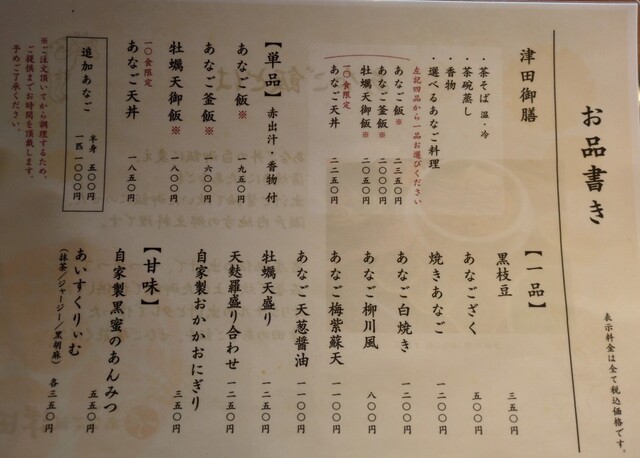 お品書き
表示料金は全て税込価格です。
津田御膳
・茶そば 温・冷
・茶碗蒸し
・香物
・選べるあなご料理
左記四品から一品お選びください
あなご飯※ 二三五〇円
あなご釜飯※ 二〇〇〇円
牡蠣天御飯※ 二〇五〇円
一〇食限定
あなご天丼 二二五〇円
【単品】 赤出汁・香物 付
あなご飯※ 一九五〇円
あなご釜飯※ 一六〇〇円
牡蠣天御飯※ 一八〇〇円
一〇食限定
あなご天丼 一八五〇円
追加あなご
半身 五〇〇円
一匹 一〇〇〇円
※ご注文頂いてから調理するため、
ご提供までお時間を頂戴します。
予めご了承ください。
【一品】
黒枝豆 三五〇円
あなござく 五〇〇円
焼きあなご 一二〇〇円
あなご白焼き 一二〇〇円
あなご柳川風 八〇〇円
あなご梅紫蘇天 一一〇〇円
あなご天葱醤油 一一〇〇円
牡蠣天盛り 一二五〇円
天麩羅盛り合わせ 一二五〇円
自家製おかかおにぎり 三五〇円
【甘味】
自家製黒蜜のあんみつ 五五〇円
あいすくりぃむ 各三五〇円
（抹茶／ジャージー／黒胡麻）